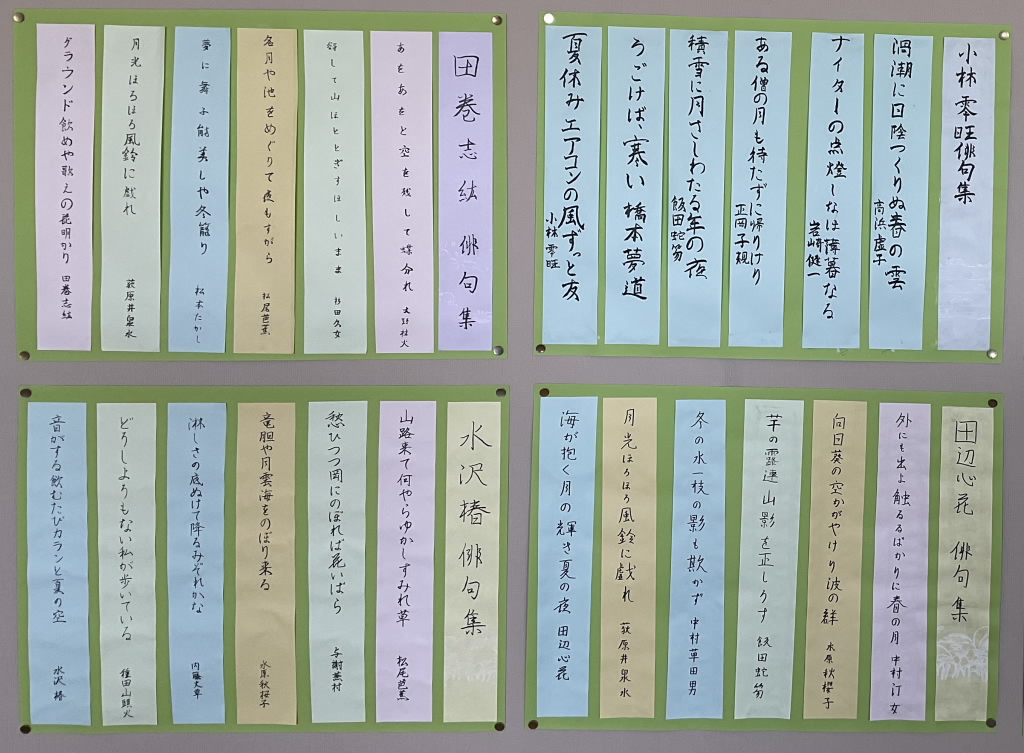 小林零旺俳句集
渦潮に日陰つくりぬ春の雲
高浜虚子
ナイターの点燈しなほ薄暮なる
岩崎健一
ある僧の月も待たずに帰りけり
正岡子規
積雪に月さしわたる年の夜
飯田蛇笏
うごけば、寒い 橋本夢道
夏休みエアコンの風ずっと友
小林零旺
田巻志紘 俳句集
あをあをと空を残して蝶分れ 大野林火
谺して山ほととぎすほしいまま 杉田久女
名月や池をめぐりて夜もすがら 松尾芭蕉
夢に舞ふ能美しや冬籠り 松本たかし
月光ほろほろ風鈴に戯れ 荻原井泉水
グラウンド飲めや歌えの花明かり 田巻志紘
田辺心花 俳句集
外にも出よ触るるばかりに春の月 中村汀女
向日葵の空かがやけり波の群 水原秋櫻子
芋の露連山影を正しうす 飯田蛇笏
冬の水一枝の影も欺かず 中村草田男
月光ほろほろ風鈴に戯れ 荻原井泉水
海が抱く月の輝き夏の夜 田辺心花
水沢椿 俳句集
山路来て何やらゆかしすみれ草 松尾芭蕉
愁ひつつ岡にのぼれば花いばら 与謝蕪村
竜胆や月雲海をのぼり来る 水原秋桜子
淋しさの底ぬけて降るみぞれかな 内藤丈草
どうしようもない私が歩いている 種田山頭火
音がする飲むたびカランと夏の空 水沢椿